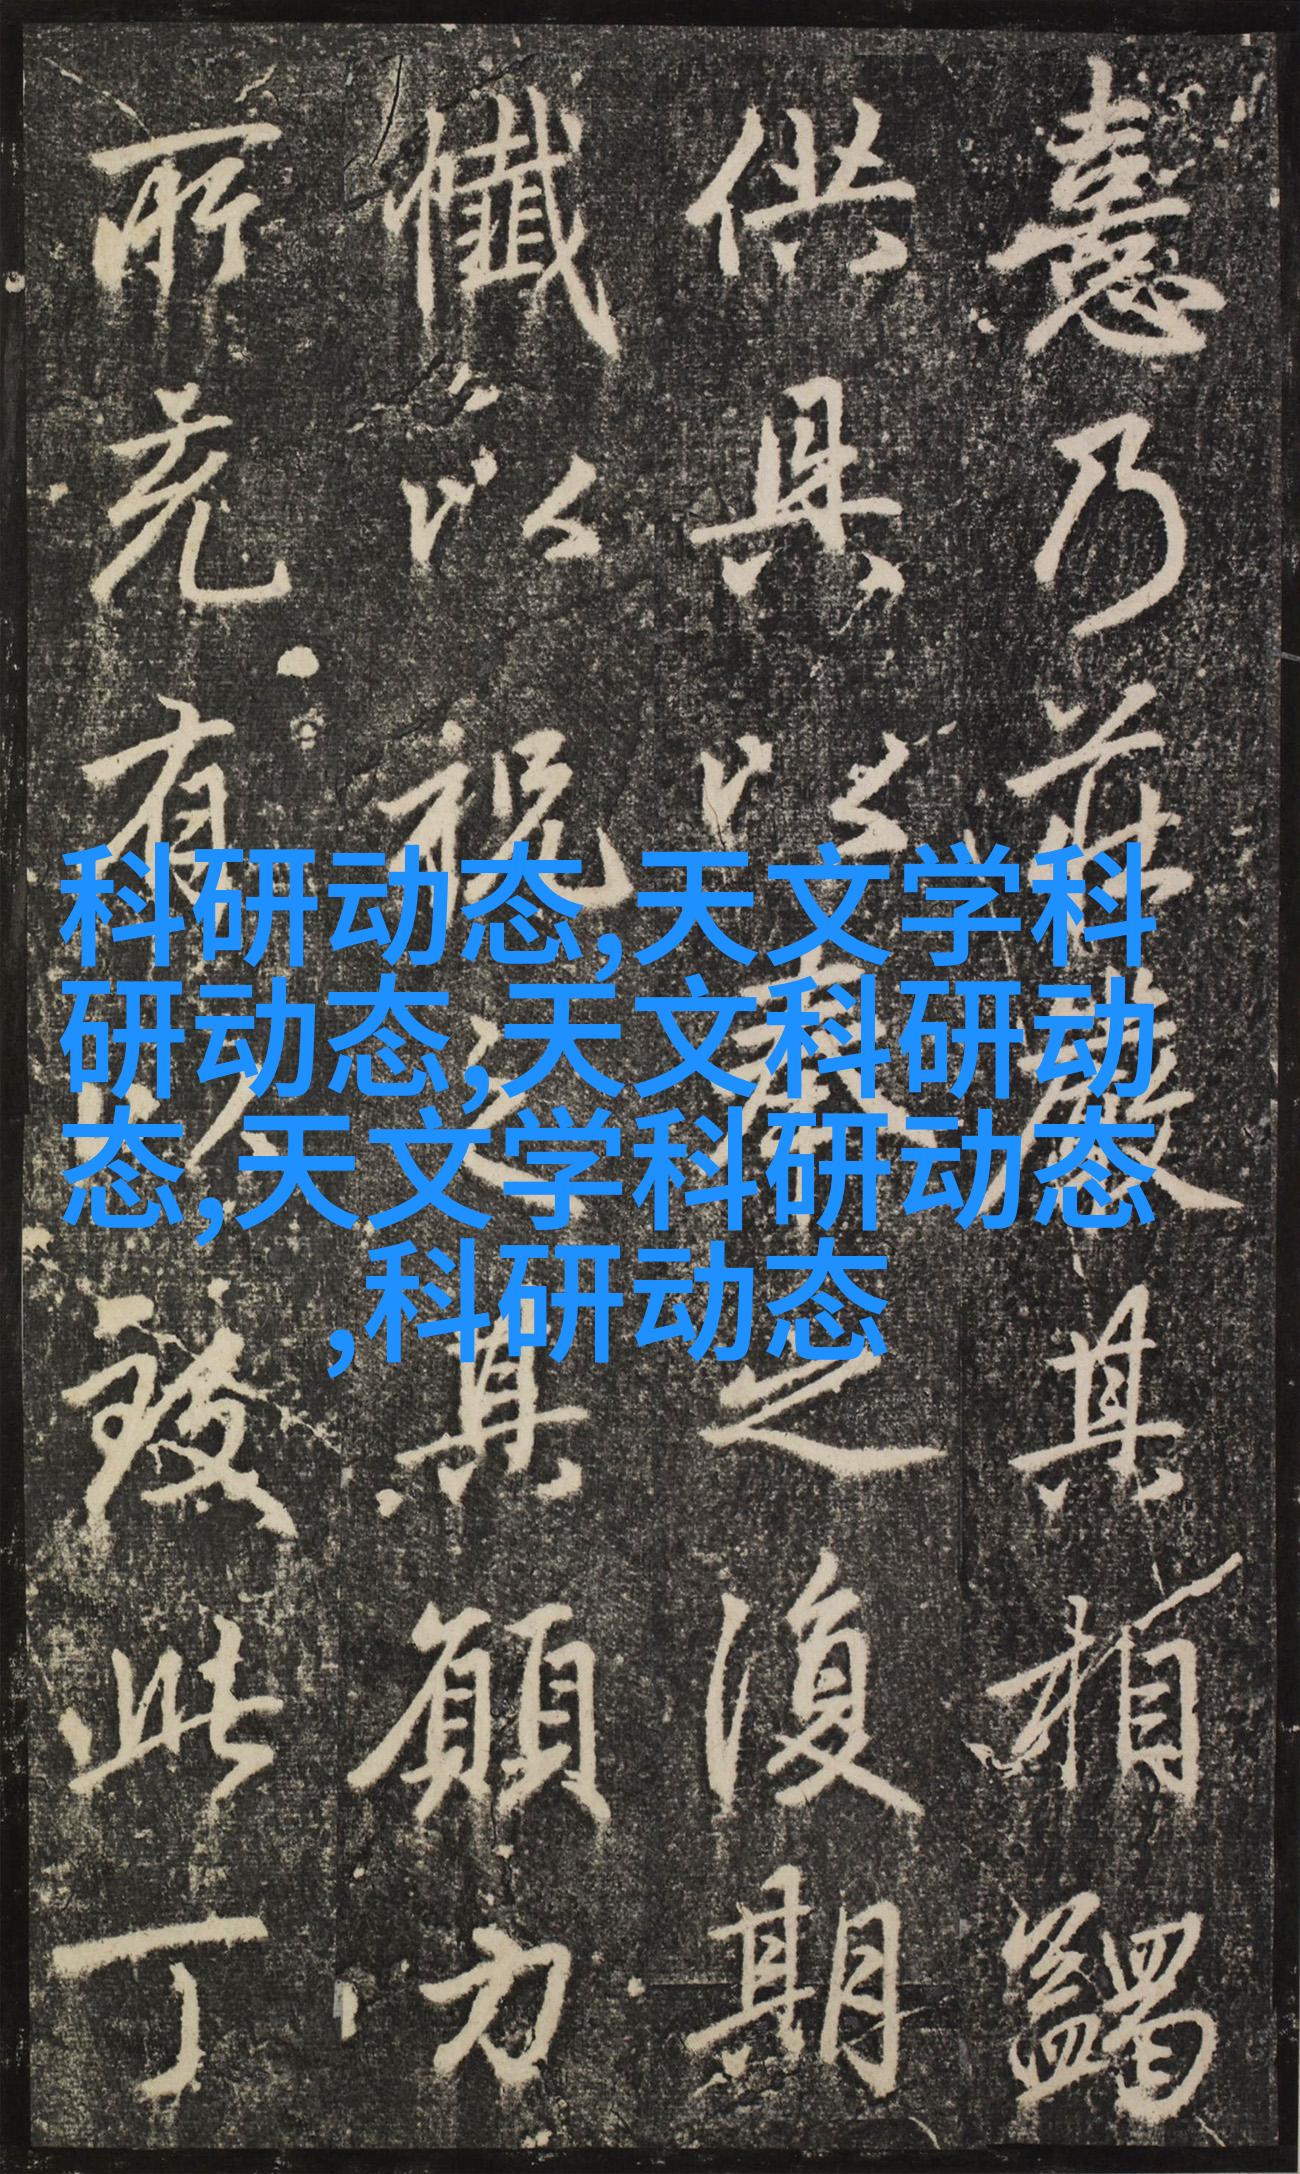 憙乃莊嚴其相蠲
供具以奉之復期
懺以祝之其願力
所充有以致此丁
科研动态,天文学科
研动态,天文科研动
态,天文学科研动态
,科研动态